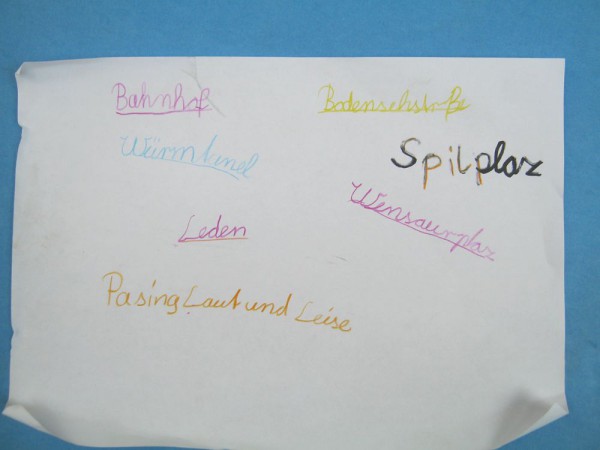 Bahnhof
Bodensehstraße
Würmtunel
Spilplaz
Wensaurplaz
Leden
Pasing Laut und Leise